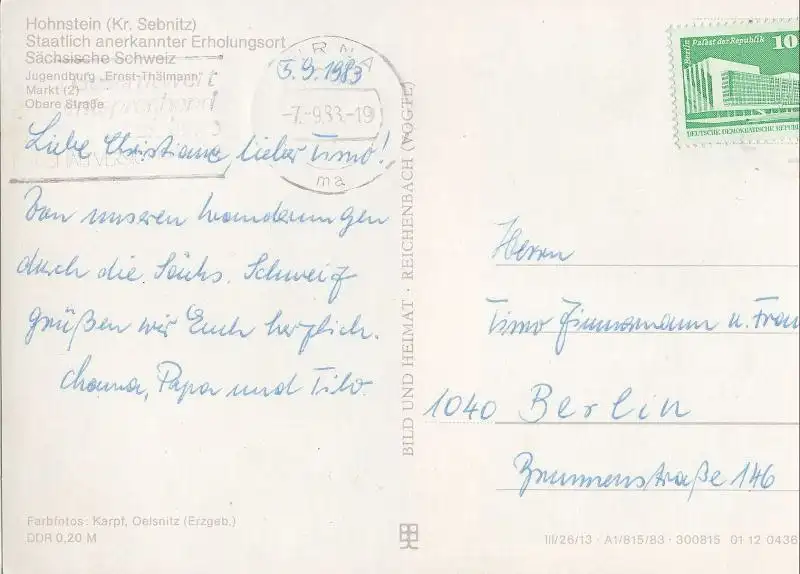 Hohnstein (Kr. Sebnitz)
Staatlich anerkannter Erholungsort
Sächsische Schweiz
Jugendburg „Ernst-Thälmann"
Markt (2)
Obere Straße
5.9.1983
-7.-9.83.-19
ma
Liebe Christiane, lieber Timo!
Von unseren Wanderungen
durch die Sächs. Schweiz
grüßen wir Euch herzlich.
Mama, Papa und Tilo.
Farbfotos: Karpf, Oelsnitz (Erzgeb.)
DDR 0,20 M
BILD UND HEIMAT · REICHENBACH (VOGTL)
Berlin Palast der Republik 10
DEUTSCHE DEMOKRATISCHE REPUBL
Herrn
Timo Zimmermann u. Frau
1040 Berlin
Brunnenstraße 146
III/26/13 · A1/815/83 · 300815 01 12 0436